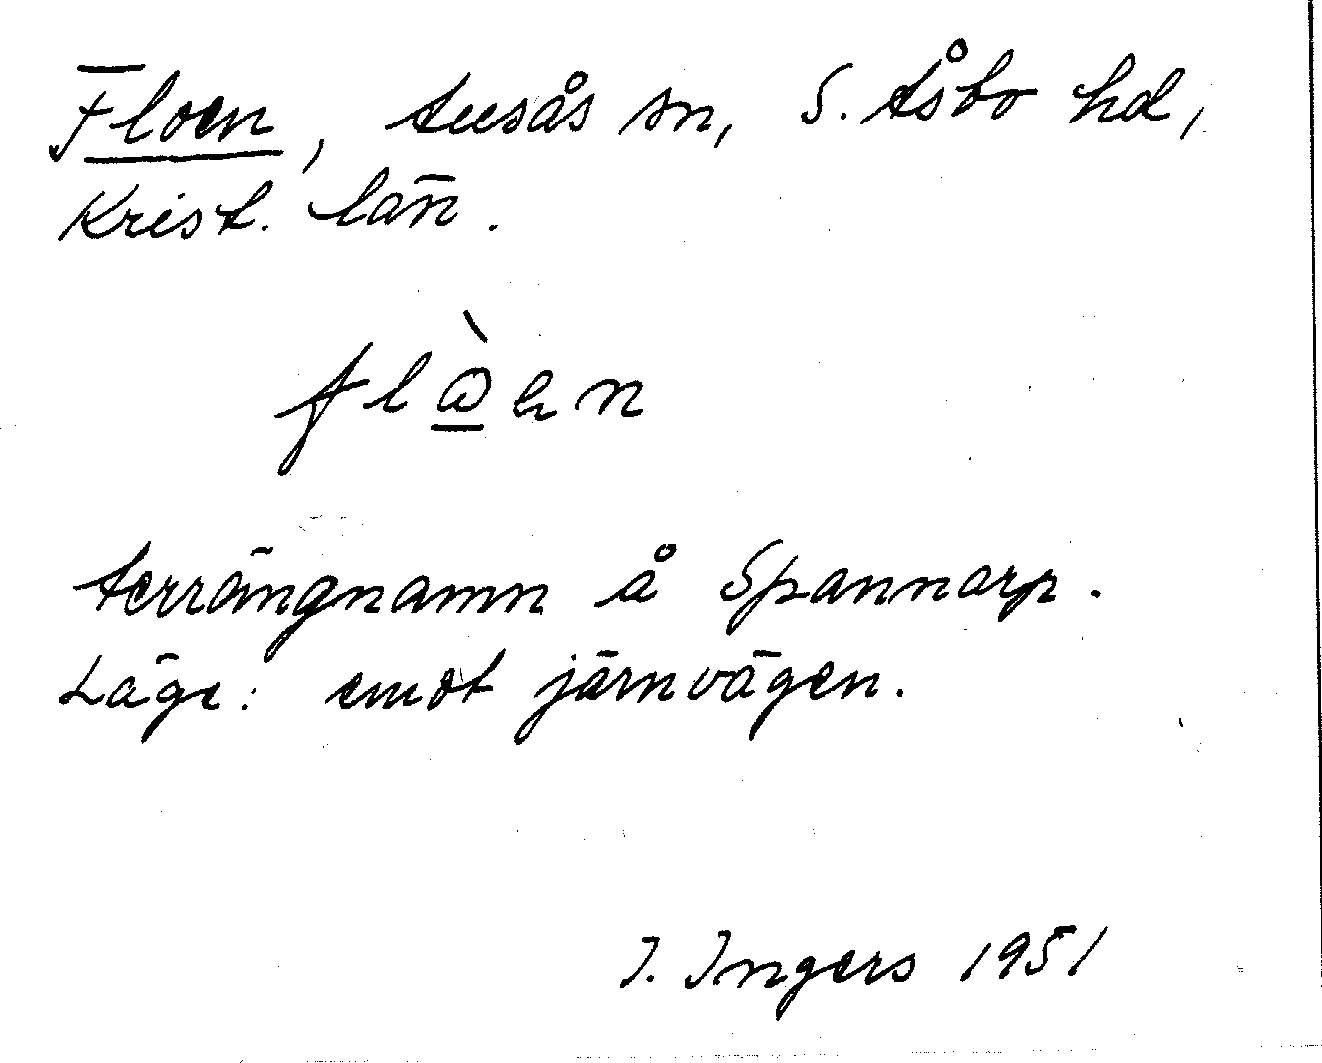 Floen, Ausås sn, S. Åsbo hd,
Krist. län.
terrängnamn å Spannarp.
Läge: emot järnvägen.
I. Ingers 1951